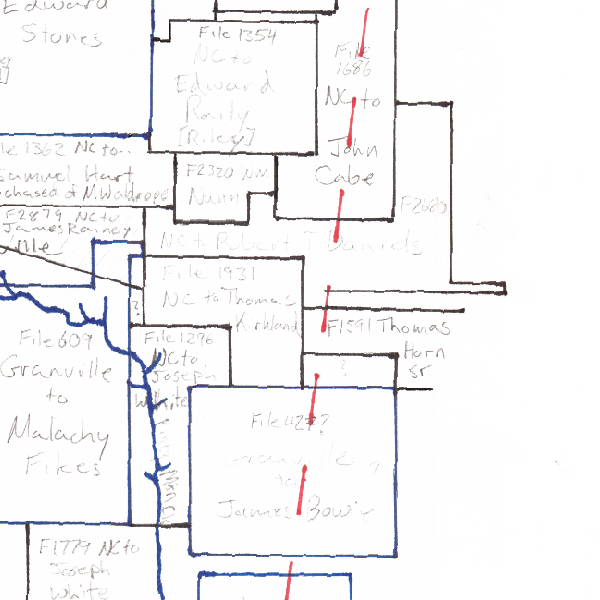 Edward
Stones
File 1354
NC to
Edward
Raily
[Riley]
File
1686
NC to
John
Cabe
le 1362 NC to..
Samuel Hart
chased of N. Waldrope
F2320 NW
Nunn
F2680
F2879 NC to
James Rainey
ville
NC to Robert T Daniels
File 1931
NC to Thomas
Kirkland
F1591 Thomas
Horn
sr
?
?
File 609
Granville
to
Malachy
Fikes
File 1296
NC to
Joseph
White
Granville
to
James Bowie
F1779 NC to
Joseph
White